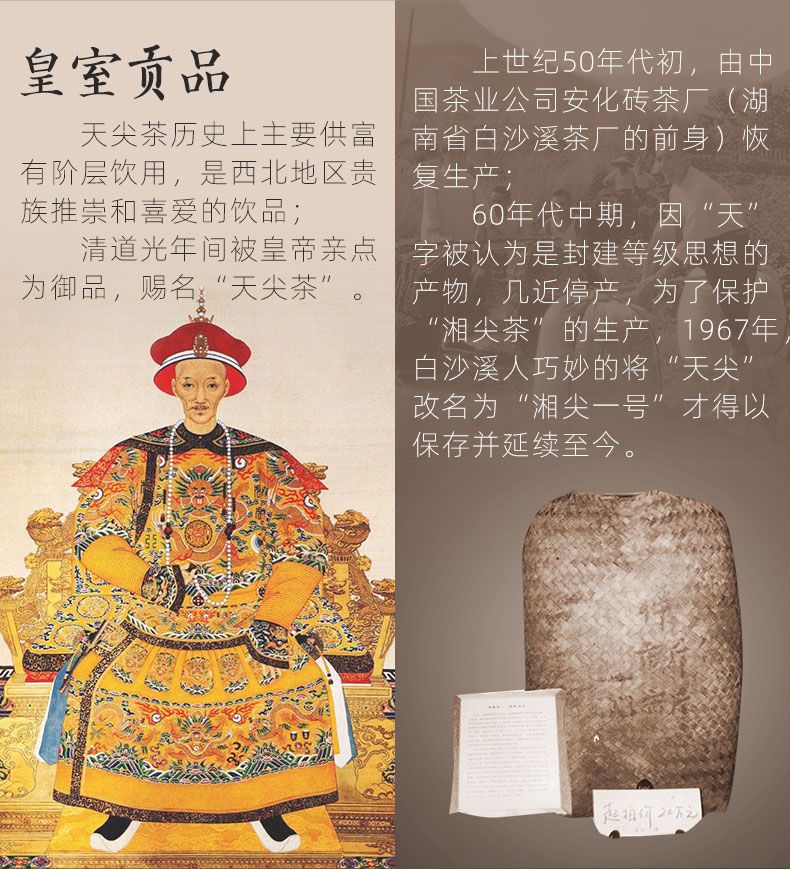 皇室贡品
天尖茶历史上主要供富
有阶层饮用，是西北地区贵
族推崇和喜爱的饮品；
清道光年间被皇帝亲点
为御品，赐名“天尖茶”。
上世纪50年代初，由中
国茶业公司安化砖茶厂（湖
南省白沙溪茶厂的前身）恢
复生产；
60年代中期，因“天”
字被认为是封建等级思想的
产物，几近停产，为了保护
“湘尖茶”的生产，1967年，
白沙溪人巧妙的将“天尖”
改名为“湘尖一号”才得以
保存并延续至今。
起拍价20万元